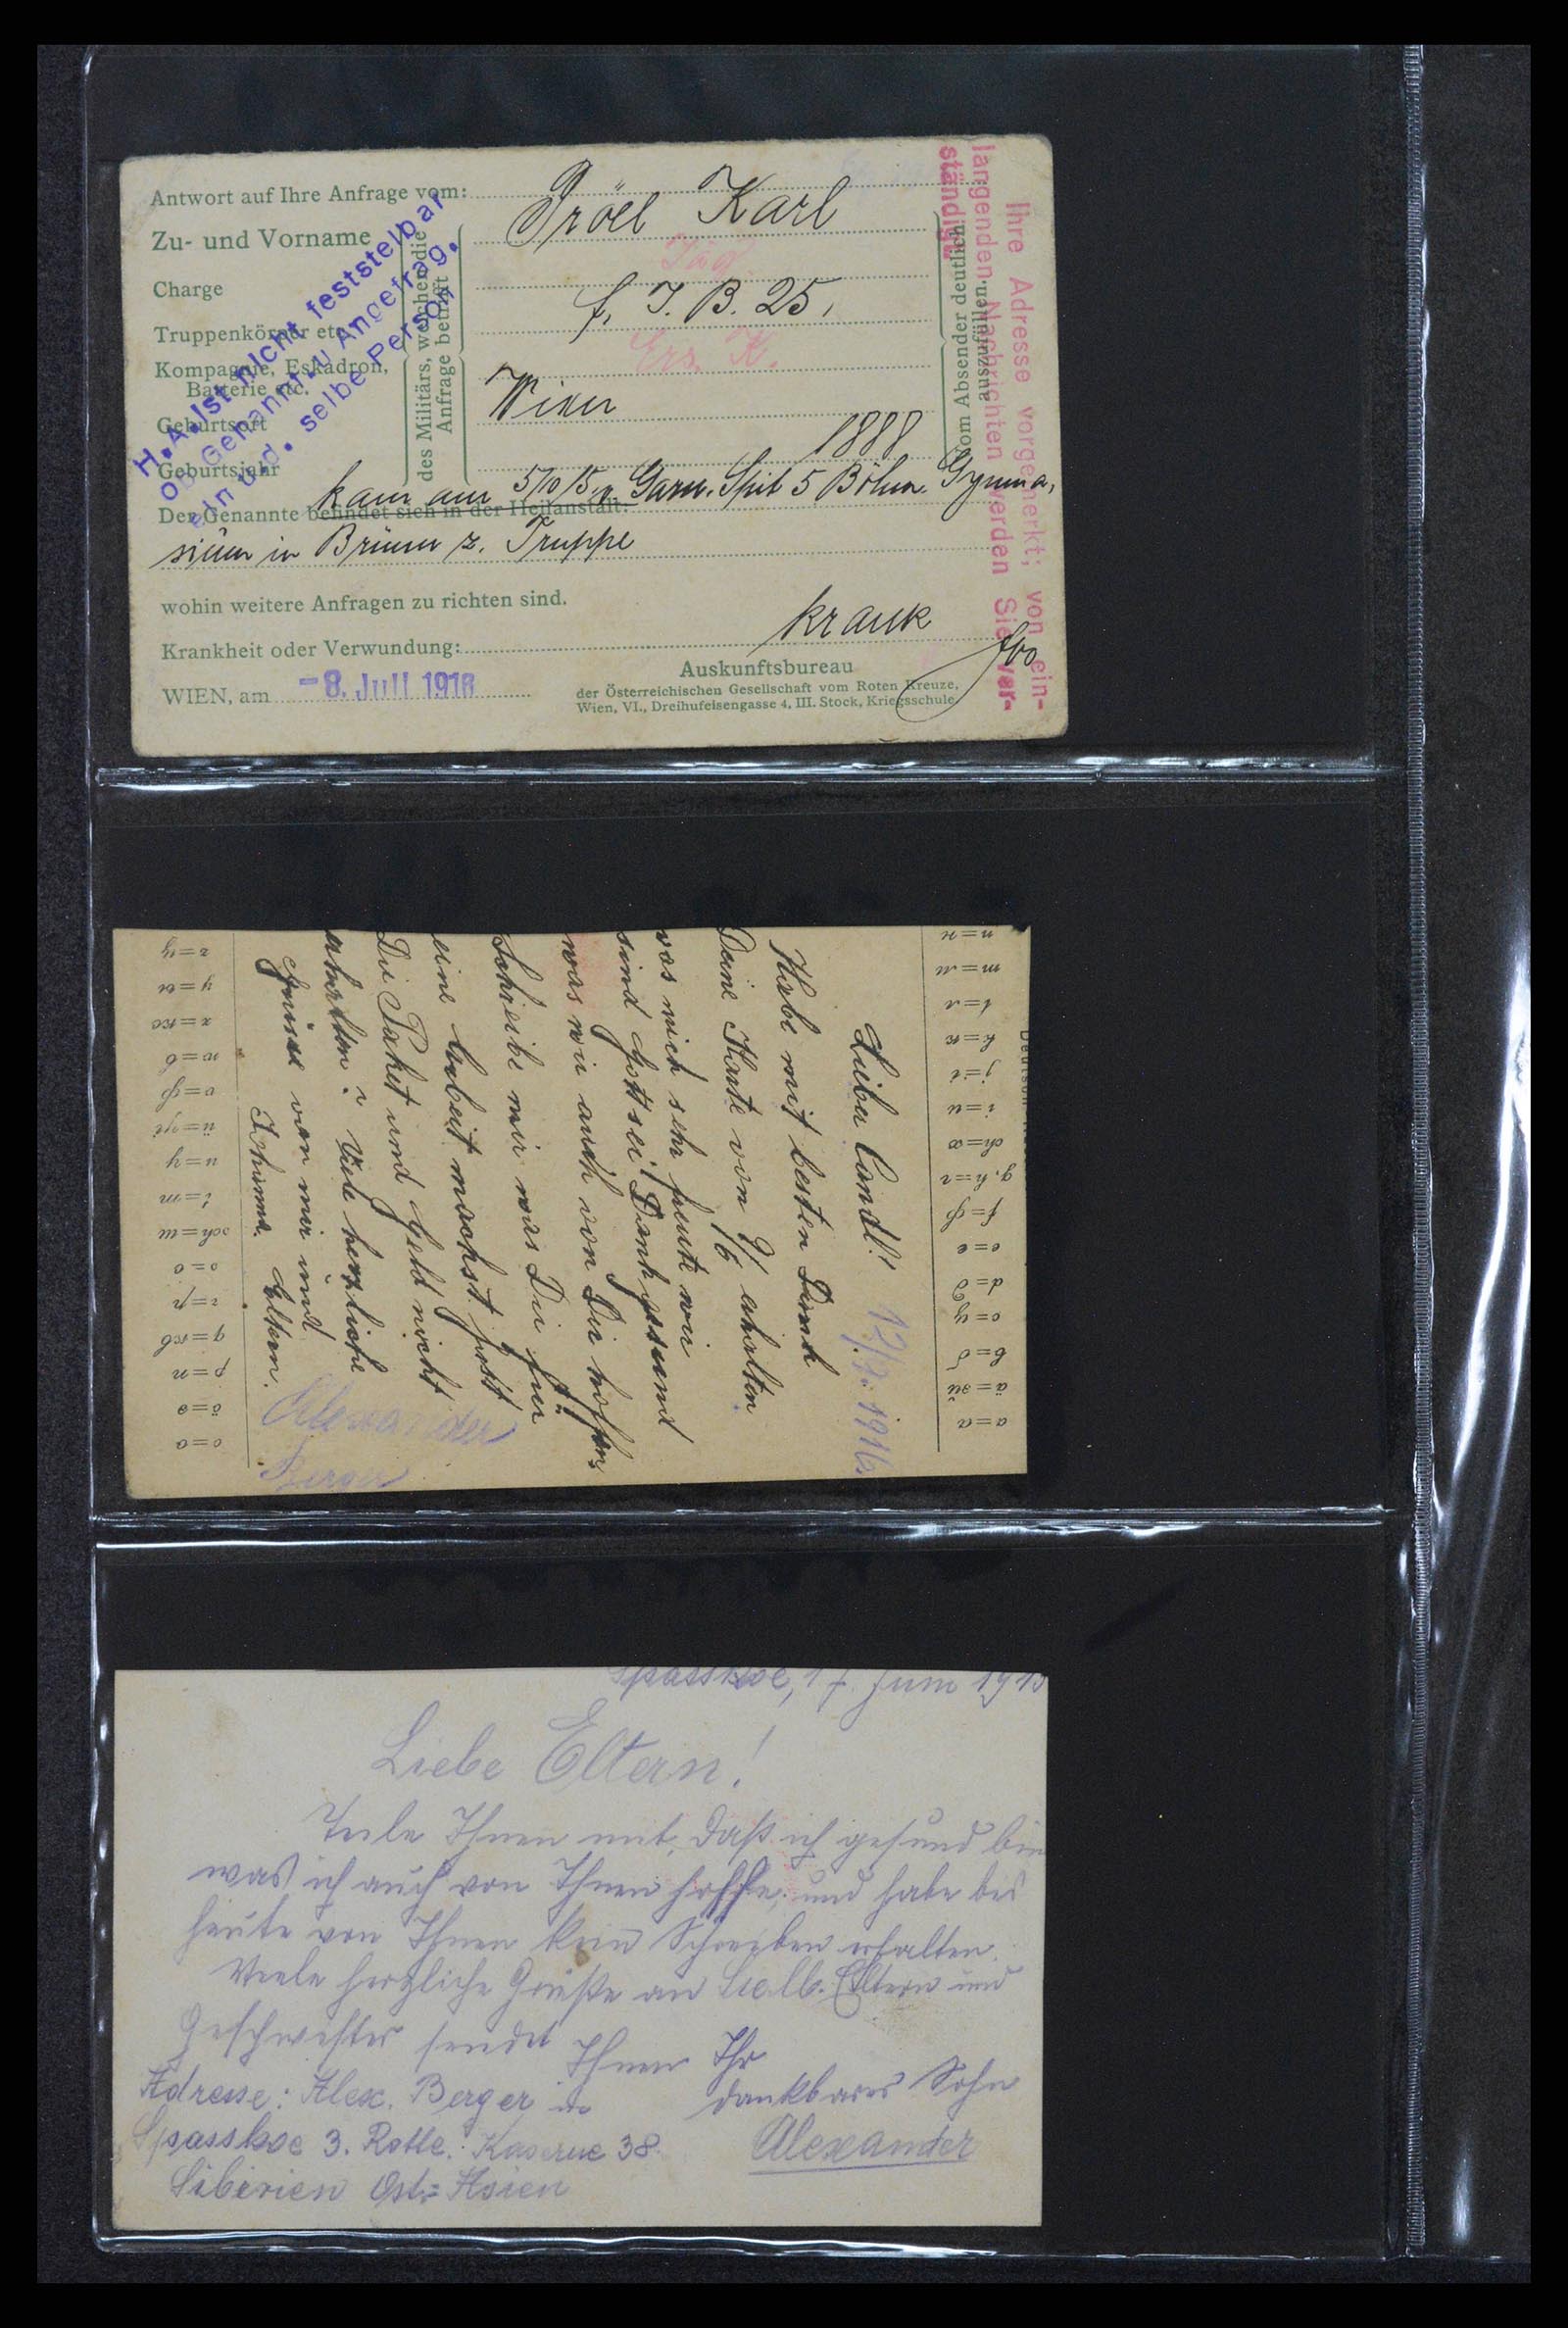 Antwort auf Ihre Anfrage vom:
Zu- und Vorname
Karl
Charge
Jäg.
Truppenkörper etc.
f. J. B. 25,
Kompagnie, Eskadron,
Batterie etc.
Ers. K.
Geburtsort
Wien
Geburtsjahr
1888
des Militärs, welchen die
Anfrage betrifft
vom Absender deutlich
auszufüllen.
H.A. Ist nicht feststellbar
ob Genannt. u Angefrag.
ein u. d. selbe Person
Ihre Adresse vorgemerkt; von ein-
langenden Nachrichten werden Sie ver-
ständigt
kam am 5/10 15 v. Garn. Spit 5 Böhm. Gymna,
Der Genannte befindet sich in der Heilanstalt:
sium in Brünn z. Truppe
wohin weitere Anfragen zu richten sind.
Krankheit oder Verwundung:
krank
WIEN, am
-8. Juli 1916
Auskunftsbureau
der Österreichischen Gesellschaft vom Roten Kreuze,
Wien, VI., Dreihufeisengasse 4, III. Stock, Kriegsschule.
12/7. 1916.
Habe mit besten Dank
Deine Karte von 9/6 erhalten
was mich sehr freute wir
sind Gott sei Dank gesund
was wir auch von Dir hoffen
Schreibe mir was Du für
eine Arbeit machst hast
Du Paket und Geld nicht
erhalten? Viele herzliche
Grüsse von mir und
Johanna. Eltern.
Alexander
Berger
Spasskoe, 17. Juni 1915
Liebe Eltern!
Teile Ihnen mit, daß ich gesund bin
was ich auch von Ihnen hoffe, und habe bis
heute von Ihnen kein Schreiben erhalten.
Viele herzliche Grüße an Eltern und
Geschwister sendet Ihnen Ihr
dankbarer Sohn
Alexander
Adresse: Alex. Berger in
Spasskoe 3. Rotte. Kaserne 38
Sibirien Ost-Asien